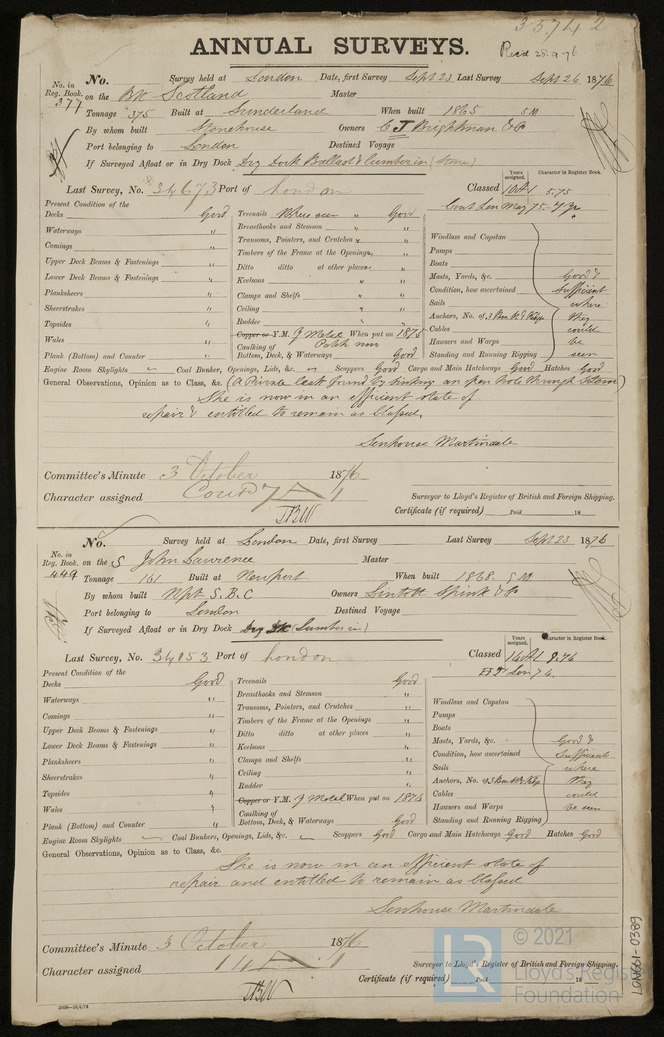 35742
ANNUAL SURVEYS.
Recd 28.9.76
No. in Reg. Book. No. Survey held at London Date, first Survey Sept 23 Last Survey Sept 26 1876
377 on the Bk Scotland Master
Tonnage 375 Built at Sunderland When built 1865 5M
By whom built Stonehouse Owners C J Brightman & Co
Port belonging to London Destined Voyage
If Surveyed Afloat or in Dry Dock Dry Dock Ballast & lumber in (Stone)
Last Survey, No. 34673 Port of London Classed Years assigned. 10A1 Character in Register Book. 5.75
Cont Lon May 75-7yrs
Present Condition of the
Decks Good Treenails Where seen " Good
Waterways " Breasthooks and Stemson " " Windlass and Capstan
Comings " Transoms, Pointers, and Crutches " " Pumps
Upper Deck Beams & Fastenings " Timbers of the Frame at the Openings " " Boats
Lower Deck Beams & Fastenings " Ditto ditto at other places " " Masts, Yards, &c. Good &
Planksheers " Keelsons " " Condition, how ascertained Sufficient
Sheerstrakes " Clamps and Shelfs " " Sails where
Topsides " Ceiling " " Anchors, No. of 3 they
Wales " Rudder " " Cables could
Copper or Y.M. Y Metal When put on 1875 Hawsers and Warps be
Plank (Bottom) and Counter " Caulking of Bottom, Deck, & Waterways Good Standing and Running Rigging seen
Engine Room Skylights Coal Bunkers, Openings, Lids, &c. Scuppers Good Cargo and Main Hatchways Good Hatches Good
General Observations, Opinion as to Class, &c. (A Private leak found by sinking an pen hole through Stem)
She is now in an efficient state of
repair & entitled to remain as Classed.
Senhouse Martindale
Committee's Minute 3 October 1876
Character assigned Contd 7 A 1
Surveyor to Lloyd's Register of British and Foreign Shipping.
Certificate (if required) Paid 18
No. in Reg. Book. No. Survey held at London Date, first Survey Last Survey Sept 23 1876
449 on the S John Lawrence Master
Tonnage 161 Built at Newport When built 1868. 5M
By whom built Npt S.B.C Owners Lintott Spink & Co
Port belonging to London Destined Voyage
If Surveyed Afloat or in Dry Dock Dry Dk (Lumber in)
Last Survey, No. 34153 Port of London Classed Years assigned. 14A1 Character in Register Book. 8.76
Lon 76.
Present Condition of the
Decks Good Treenails Good
Waterways " Breasthooks and Stemson " Windlass and Capstan
Comings " Transoms, Pointers, and Crutches " Pumps
Upper Deck Beams & Fastenings " Timbers of the Frame at the Openings " Boats
Lower Deck Beams & Fastenings " Ditto ditto at other places " Masts, Yards, &c. Good &
Planksheers " Keelsons " Condition, how ascertained Sufficient
Sheerstrakes " Clamps and Shelfs " Sails where
Topsides " Ceiling " Anchors, No. of 3 they
Wales " Rudder " Cables could
Copper or Y.M. Y Metal When put on 1876 Hawsers and Warps be seen
Plank (Bottom) and Counter " Caulking of Bottom, Deck, & Waterways Good Standing and Running Rigging
Engine Room Skylights Coal Bunkers, Openings, Lids, &c. Scuppers Good Cargo and Main Hatchways Good Hatches Good
General Observations, Opinion as to Class, &c.
She is now in an efficient state of
repair and entitled to remain as Classed
Senhouse Martindale
Committee's Minute 3 October 1876
Character assigned 14 A 1
Surveyor to Lloyd's Register of British and Foreign Shipping.
Certificate (if required) Paid 18
2000—18/4/76
LON661-0389
© 2021
LR
Lloyd's Register
Foundation